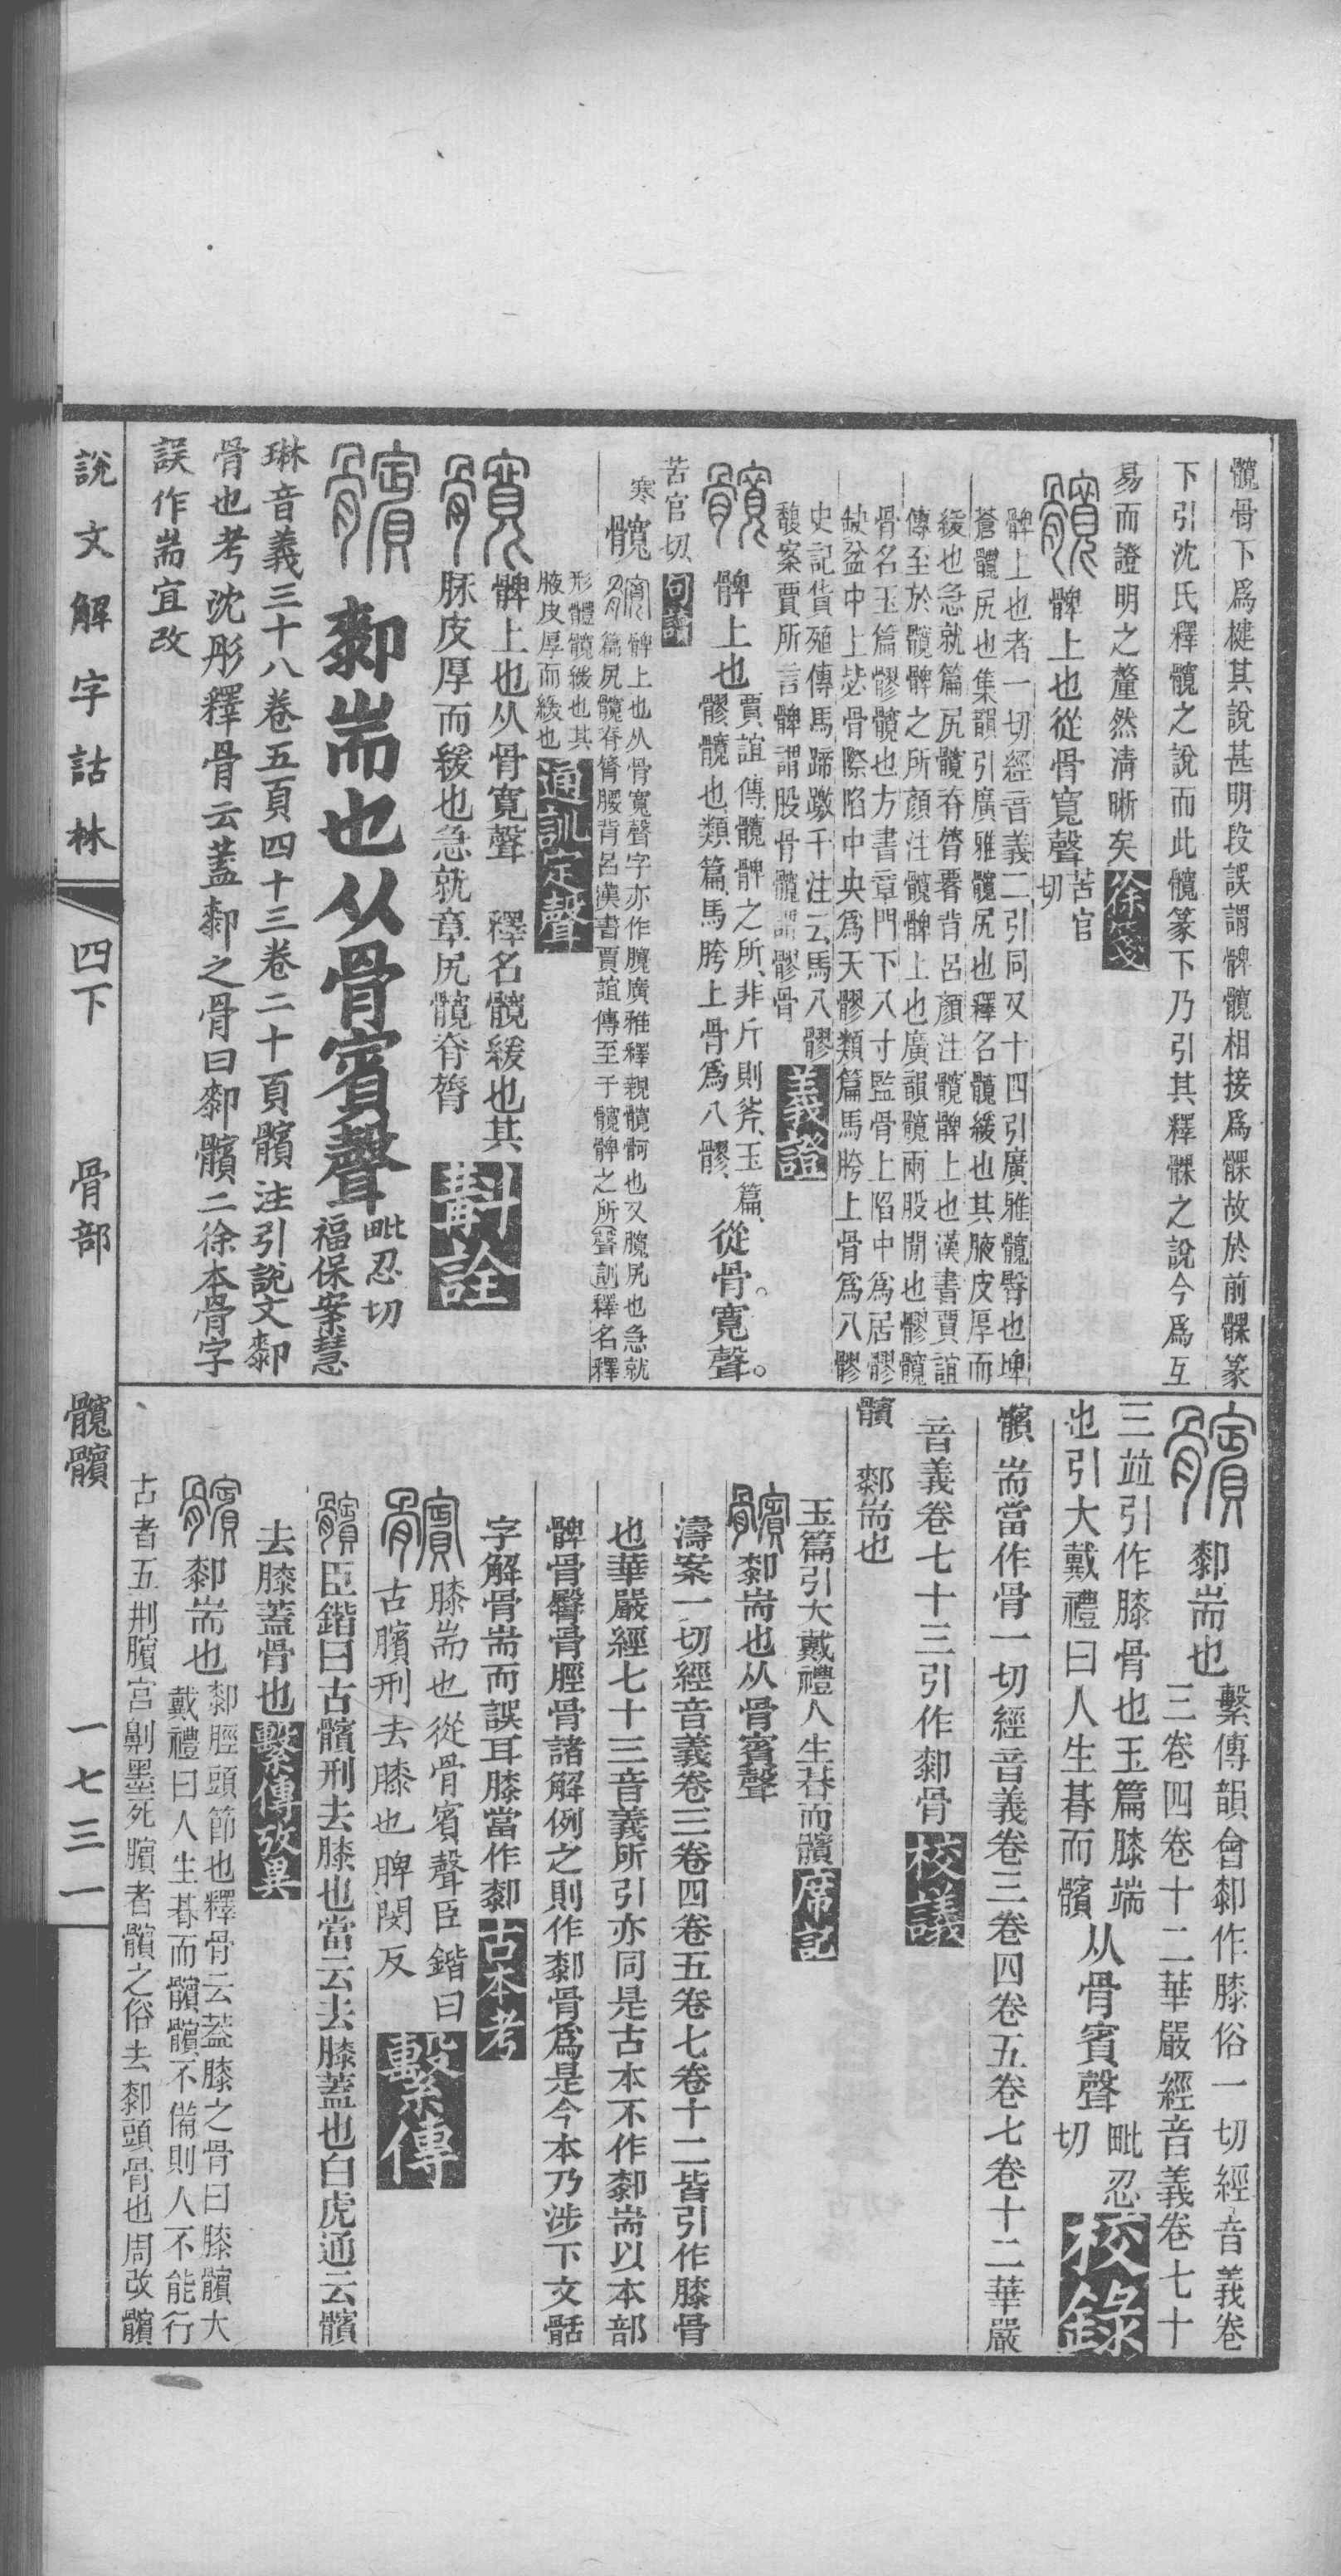 髖骨下爲楗其說甚明段誤謂髀髖相接爲髁故於前髁篆
下引沈氏釋髖之說而此髖篆下乃引其釋髁之說今爲互
易而證明之釐然淸晰矣徐箋
髖髀上也從骨寬聲苦官切
髀上也者一切經音義二引同又十四引廣雅髖臀也埤
蒼髖尻也集韻引廣雅髖尻也釋名髖緩也其腋皮厚而
緩也急就篇尻髖脊膂署背呂顏注髖髀上也漢書賈誼
傳至於髖髀之所顏注髖髀上也廣韻髖兩股閒也髎髖
骨名玉篇髎髖也方書章門下八寸監骨上陷中爲居髎
缺盆中上毖骨際陷中央爲天髎類篇馬胯上骨爲八髎
史記貨殖傳馬蹄躈千注云馬八髎
馥案賈所言髀謂股骨髖謂髎骨義證
髖髀上也賈誼傳髖髀之所、非斤則斧、玉篇、
髎髖也、類篇、馬胯上骨爲八髎、從骨。寬聲。
苦官切句讀
寒
髖髀上也从骨寬聲字亦作臗廣雅釋親髖䯊也又臗尻也急就
篇尻髖脊膂腰背呂漢書賈誼傳至于髖髀之所〔聲訓〕釋名釋
形體髖緩也其
腋皮厚而緩也通訓定聲
髖髀上也从骨寬聲 釋名髖緩也其
䏢皮厚而緩也急就章尻髖脊膂斠詮
髕厀耑也从骨賓聲毗忍切
福保案慧
琳音義三十八卷五頁四十三卷二十頁髕注引說文厀
骨也考沈彤釋骨云蓋厀之骨曰厀髕二徐本骨字
誤作耑宜改
髕厀耑也繫傳韻會厀作膝俗一切經音義卷
三卷四卷十二華嚴經音義卷七十
三竝引作膝骨也玉篇膝端
也引大戴禮曰人生朞而髕从骨賓聲毗忍切校錄
髕 耑當作骨一切經音義卷三卷四卷五卷七卷十二華嚴
音義卷七十三引作厀骨校議
髕 厀耑也
玉篇引大戴禮人生朞而髕席記
髕厀耑也从骨賓聲
濤案一切經音義卷三卷四卷五卷七卷十二皆引作膝骨
也華嚴經七十三音義所引亦同是古本不作厀耑以本部
髀骨臀骨脛骨諸解例之則作厀骨爲是今本乃涉下文𩨗
字解骨耑而誤耳膝當作厀古本考
髕膝耑也從骨賓聲臣鍇曰
古臏刑去膝也脾閔反繫傳
髕臣鍇曰古髕刑去膝也當云去膝蓋也白虎通云髕
去膝蓋骨也繫傳攷異
髕厀耑也厀脛頭節也釋骨云蓋膝之骨曰膝髕大
戴禮曰人生朞而髕髕不備則人不能行
古者五刑臏宮劓墨死臏者髕之俗去厀頭骨也周改髕
說文解字詁林 四下 骨部 髖髕 一七三一